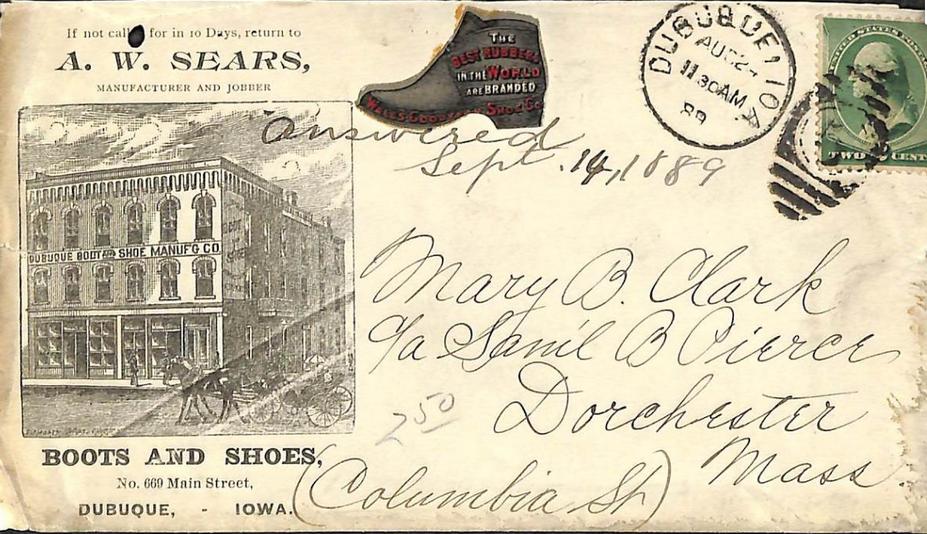 If not call for in 10 Days, return to
A. W. SEARS,
MANUFACTURER AND JOBBER
THE
BEST RUBBERS
IN THE WORLD
ARE BRANDED
WALES GOODYEAR SHOE CO.
DUBUQUE, IOWA
AUG 24
11 30 AM
89
UNITED STATES POSTAGE
TWO CENTS
answered
Sept. 14, 1889
DUBUQUE BOOT AND SHOE MANUF'G CO.
Mary B. Clark
c/a Sam'l B Pierce
Dorchester
Mass
(Columbia St)
2 50
BOOTS AND SHOES,
No. 669 Main Street,
DUBUQUE, - IOWA.